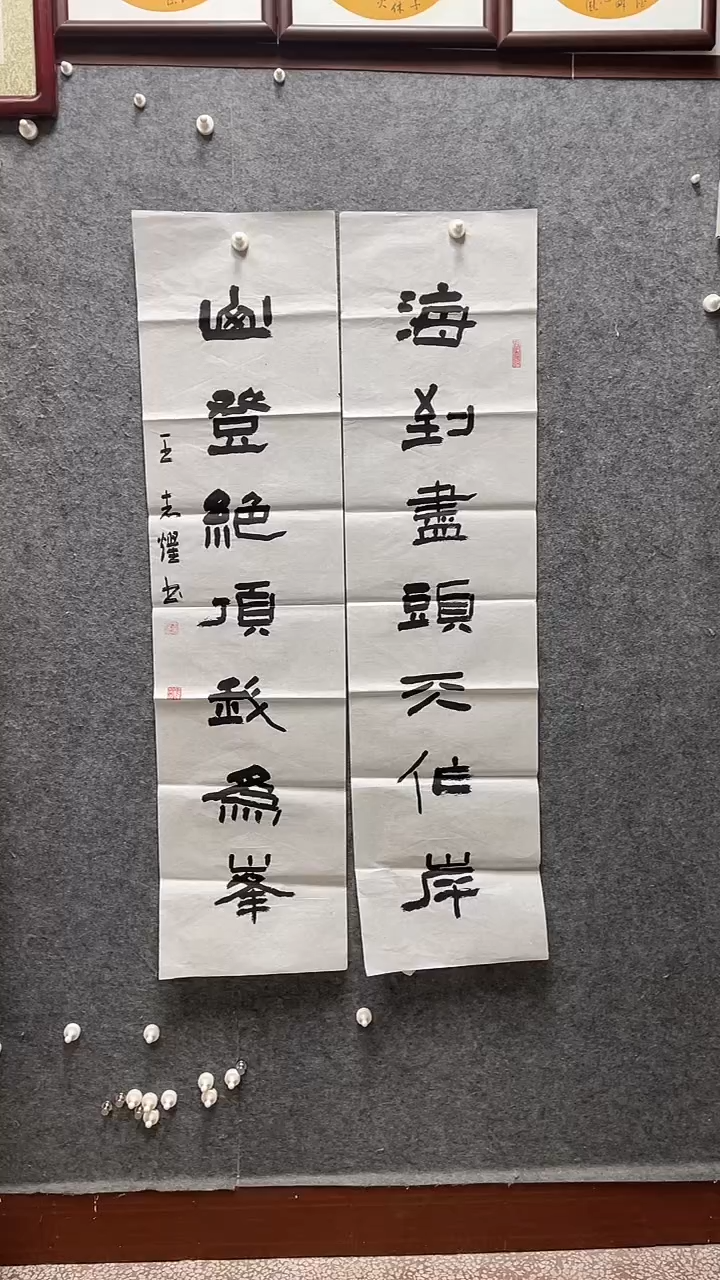 海到盡頭天作岸
山登絶頂我為峯
王志燿书